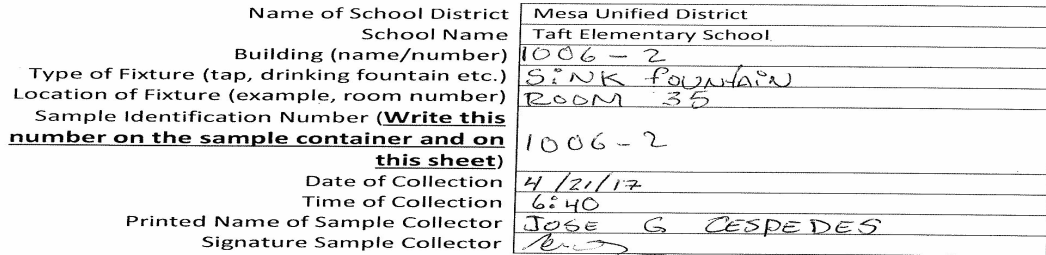 Name of School District Mesa Unified District
School Name Taft Elementary School
Building (name/number) 1006-2
Type of Fixture (tap, drinking fountain etc.) SiNK fOUNtAiN
Location of Fixture (example, room number) ROOM 35
Sample Identification Number (Write this
number on the sample container and on 1006-2
this sheet)
Date of Collection 4/21/17
Time of Collection 6:40
Printed Name of Sample Collector JOSE G CESPEDES
Signature Sample Collector